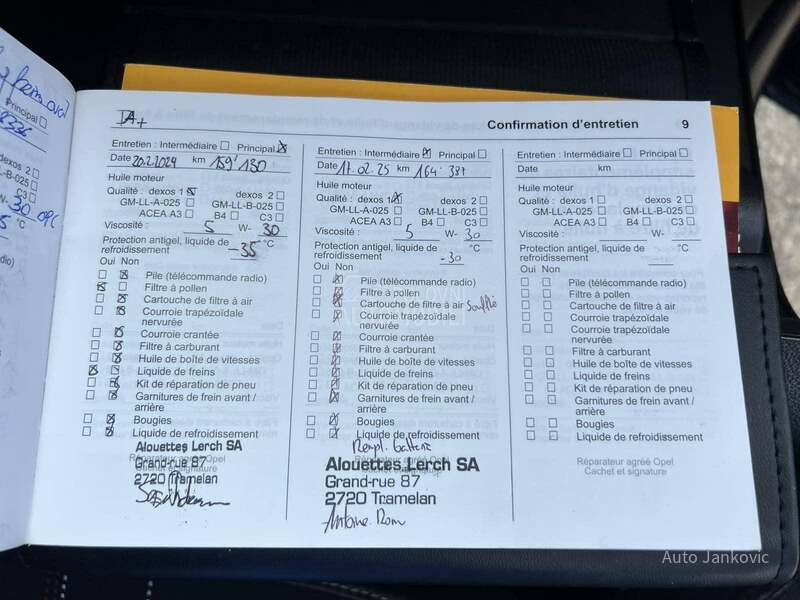 IA+
Confirmation d'entretien 9
Principal
Entretien : Intermédiaire Principal
Date 20.2.2024 km 159'130
Huile moteur
Qualité : dexos 1 dexos 2
GM-LL-A-025 GM-LL-B-025
ACEA A3 B4 C3
Viscosité : 5 W- 30
Protection antigel, liquide de
refroidissement -35 °C
Oui Non
Pile (télécommande radio)
Filtre à pollen
Cartouche de filtre à air
Courroie trapézoïdale
nervurée
Courroie crantée
Filtre à carburant
Huile de boîte de vitesses
Liquide de freins
Kit de réparation de pneu
Garnitures de frein avant /
arrière
Bougies
Liquide de refroidissement
Alouettes Lerch SA
Grand-rue 87
2720 Tramelan
Réparateur agréé Opel
Cachet et signature
Entretien : Intermédiaire Principal
Date 17.02.25 km 164'381
Huile moteur
Qualité : dexos 1 dexos 2
GM-LL-A-025 GM-LL-B-025
ACEA A3 B4 C3
Viscosité : 5 W- 30
Protection antigel, liquide de
refroidissement -30 °C
Oui Non
Pile (télécommande radio)
Filtre à pollen
Cartouche de filtre à air Soufflé
Courroie trapézoïdale
nervurée
Courroie crantée
Filtre à carburant
Huile de boîte de vitesses
Liquide de freins
Kit de réparation de pneu
Garnitures de frein avant /
arrière
Bougies
Liquide de refroidissement
Rempl. batterie
Alouettes Lerch SA
Grand-rue 87
2720 Tramelan
Réparateur agréé Opel
Cachet et signature
Entretien : Intermédiaire Principal
Date km
Huile moteur
Qualité : dexos 1 dexos 2
GM-LL-A-025 GM-LL-B-025
ACEA A3 B4 C3
Viscosité : W-
Protection antigel, liquide de
refroidissement °C
Oui Non
Pile (télécommande radio)
Filtre à pollen
Cartouche de filtre à air
Courroie trapézoïdale
nervurée
Courroie crantée
Filtre à carburant
Huile de boîte de vitesses
Liquide de freins
Kit de réparation de pneu
Garnitures de frein avant /
arrière
Bougies
Liquide de refroidissement
Réparateur agréé Opel
Cachet et signature
Auto Jankovic